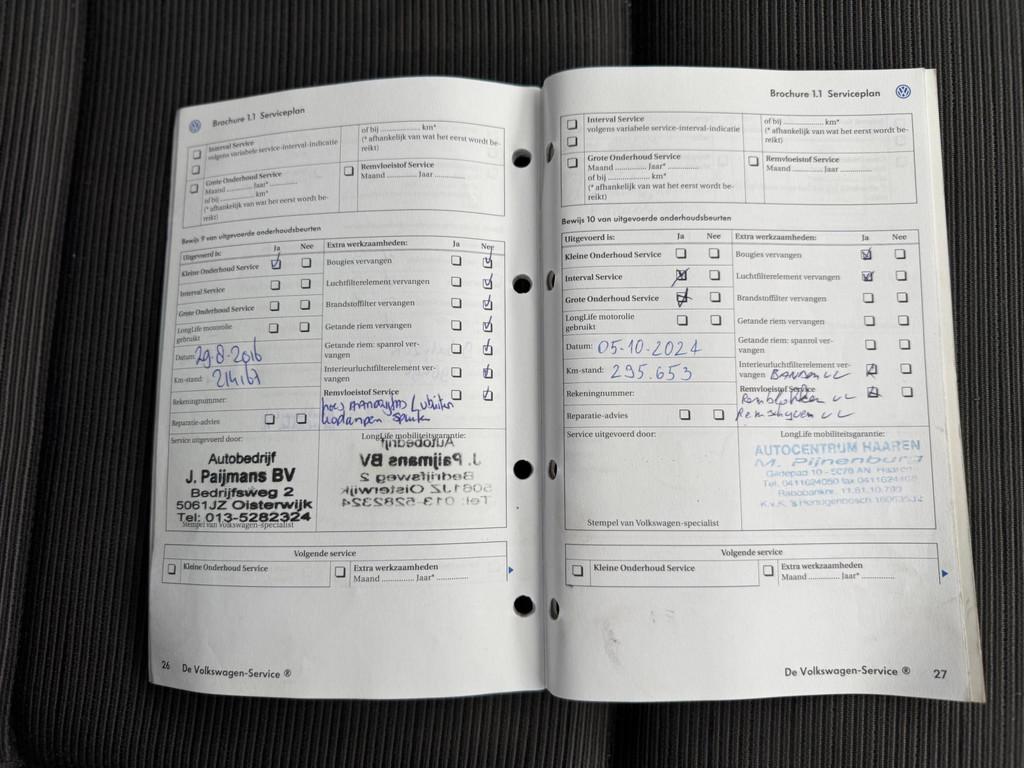 Brochure 1.1 Serviceplan
Interval Service
volgens variabele service-interval-indicatie
Grote Onderhoud Service
Maand ............ Jaar* ............
of bij ............ km*
(* afhankelijk van wat het eerst wordt be-
reikt)
of bij ............ km*
(* afhankelijk van wat het eerst wordt be-
reikt)
Remvloeistof Service
Maand ............ Jaar ............
Bewijs 9 van uitgevoerde onderhoudsbeurten
Uitgevoerd is: Ja Nee
Kleine Onderhoud Service
Interval Service
Grote Onderhoud Service
LongLife motorolie
gebruikt
Datum: 29-8-2016
Km-stand: 214167
Rekeningnummer:
Reparatie-advies
Extra werkzaamheden: Ja Nee
Bougies vervangen
Luchtfilterelement vervangen
Brandstoffilter vervangen
Getande riem vervangen
Getande riem: spanrol ver-
vangen
Interieurluchtfilterelement ver-
vangen
Remvloeistof Service
Service uitgevoerd door:
Autobedrijf
J. Paijmans BV
Bedrijfsweg 2
5061JZ Oisterwijk
Tel: 013-5282324
Stempel van Volkswagen-specialist
LongLife mobiliteitsgarantie:
Autobedrijf
J. Paijmans BV
Bedrijfsweg 2
5061JZ Oisterwijk
Tel: 013-5282324
Volgende service
Kleine Onderhoud Service
Extra werkzaamheden
Maand ............ Jaar* ............
26 De Volkswagen-Service ®
Brochure 1.1 Serviceplan
Interval Service
volgens variabele service-interval-indicatie
Grote Onderhoud Service
Maand ............ Jaar* ............
of bij ............ km*
(* afhankelijk van wat het eerst wordt be-
reikt)
of bij ............ km*
(* afhankelijk van wat het eerst wordt be-
reikt)
Remvloeistof Service
Maand ............ Jaar ............
Bewijs 10 van uitgevoerde onderhoudsbeurten
Uitgevoerd is: Ja Nee
Kleine Onderhoud Service
Interval Service
Grote Onderhoud Service
LongLife motorolie
gebruikt
Datum: 05-10-2024
Km-stand: 295.653
Rekeningnummer:
Reparatie-advies
Extra werkzaamheden: Ja Nee
Bougies vervangen
Luchtfilterelement vervangen
Brandstoffilter vervangen
Getande riem vervangen
Getande riem: spanrol ver-
vangen
Interieurluchtfilterelement ver-
vangen Banden
Remvloeistof Service
Remblokken
Remschijven
Service uitgevoerd door:
Stempel van Volkswagen-specialist
LongLife mobiliteitsgarantie:
AUTOCENTRUM HAAREN
M. Pijnenburg
Gildepad 10 - 5076 AN Haaren
Tel. 0411624050 fax 0411624
Rabobanknr.
K.v.K. 's Hertogenbosch
Volgende service
Kleine Onderhoud Service
Extra werkzaamheden
Maand ............ Jaar* ............
De Volkswagen-Service ® 27